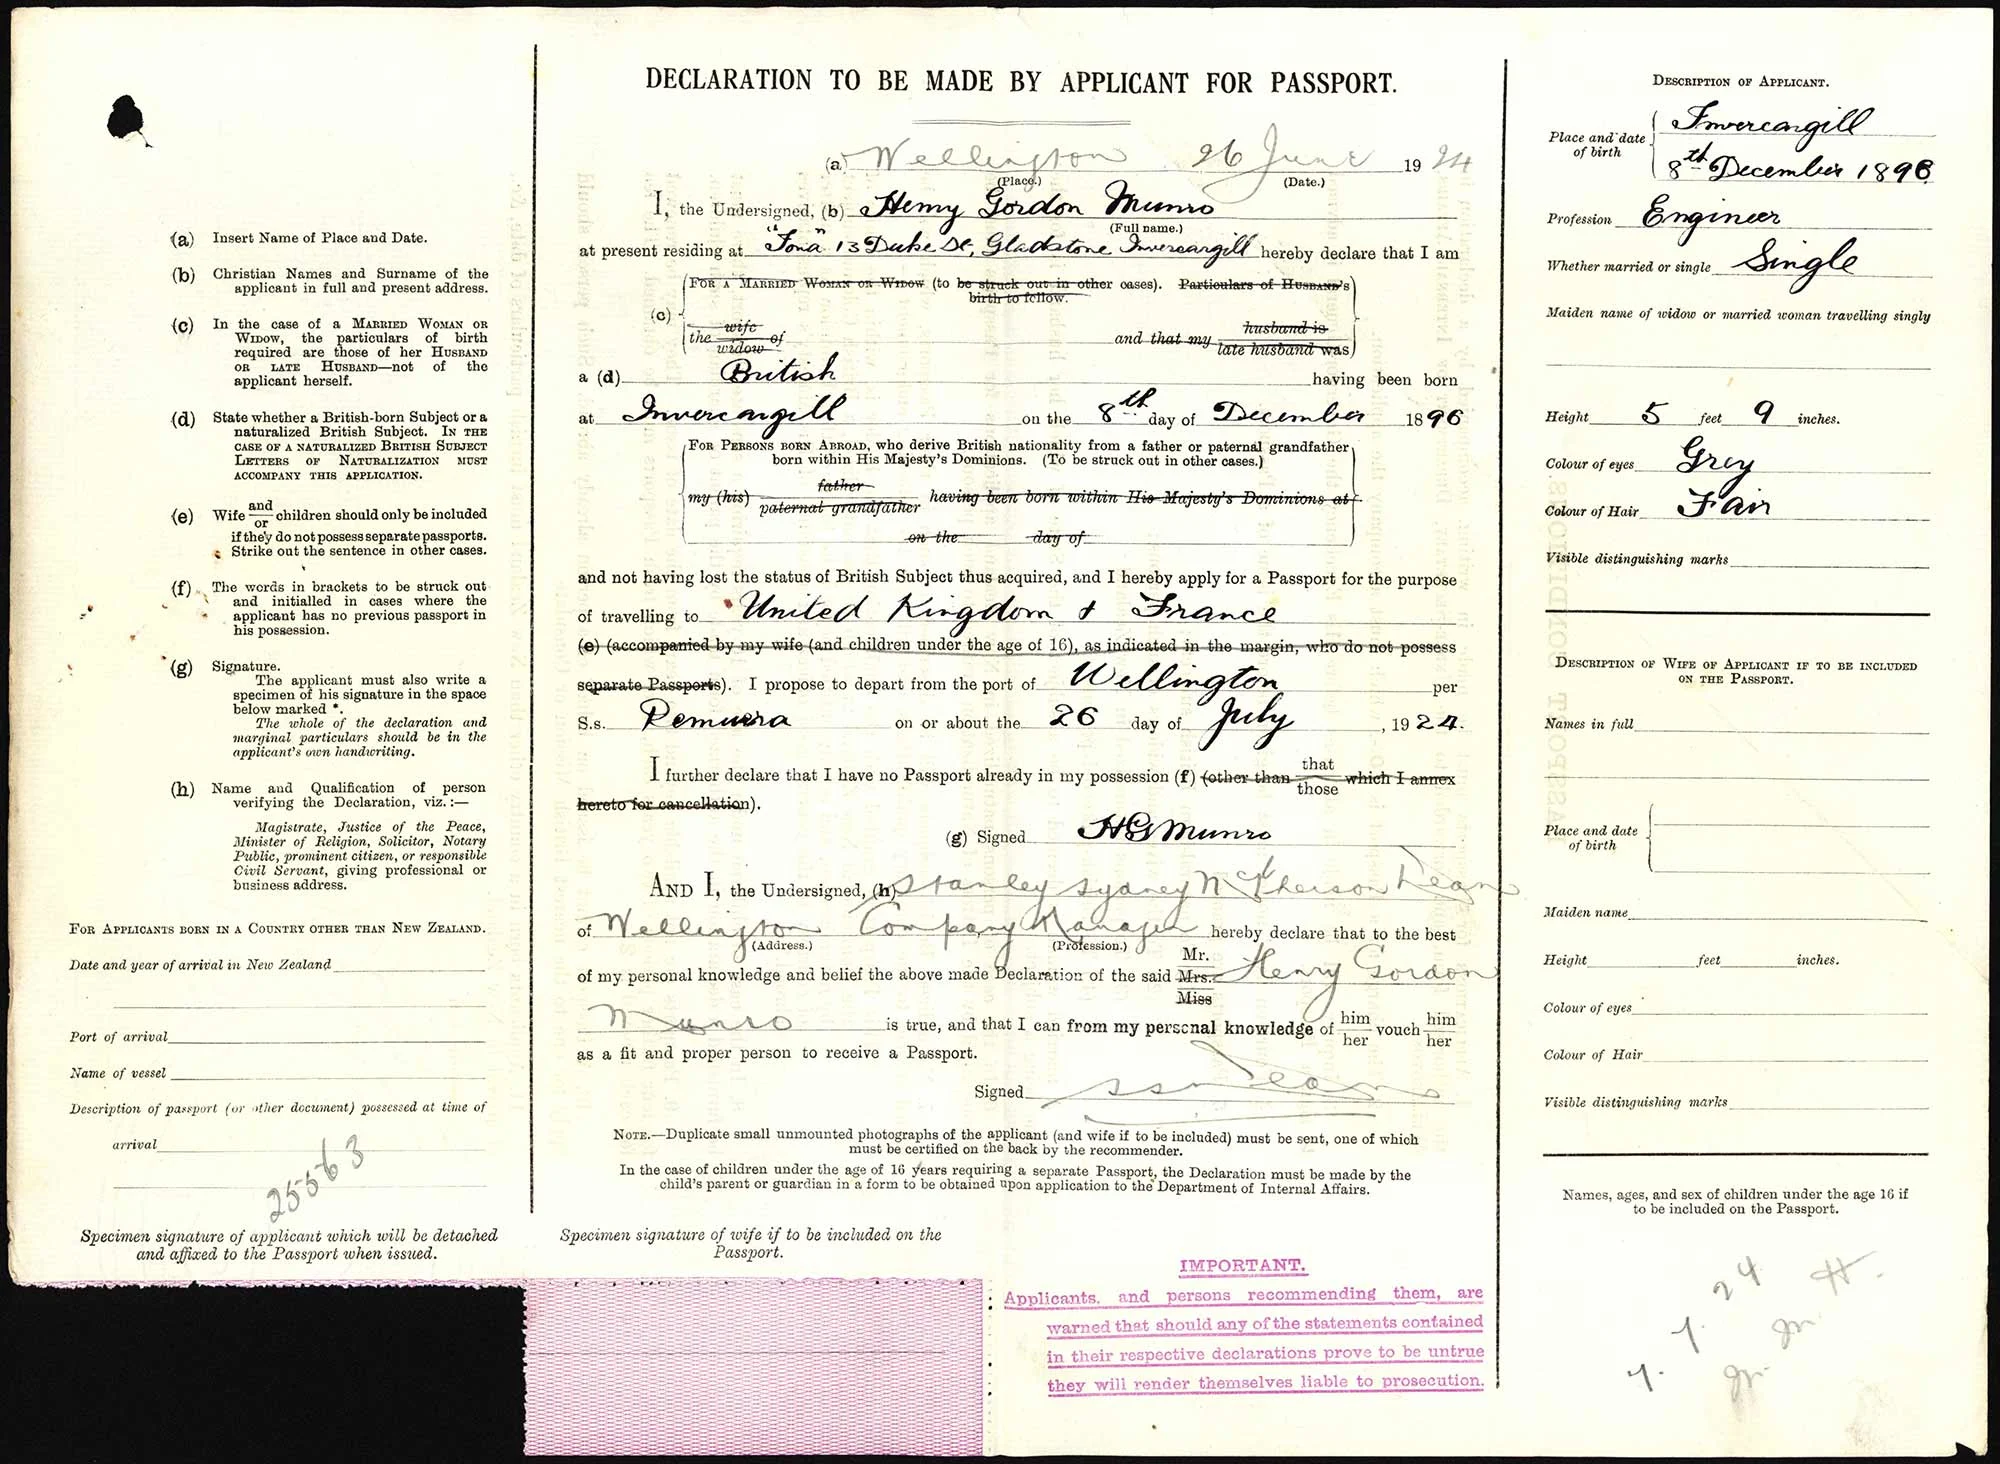 DECLARATION TO BE MADE BY APPLICANT FOR PASSPORT.
(a) Wellington 26 June 1924
(Place.) (Date.)
I, the Undersigned, (b) Henry Gordon Munro
(Full name.)
at present residing at "Iona" 13 Duke St, Gladstone Invercargill hereby declare that I am
(c) FOR A MARRIED WOMAN OR WIDOW (to be struck out in other cases). Particulars of HUSBAND's
birth to follow.
the wife of / widow of and that my husband is / late husband was
a (d) British having been born
at Invercargill on the 8th day of December 1896
FOR PERSONS BORN ABROAD, who derive British nationality from a father or paternal grandfather
born within His Majesty's Dominions. (To be struck out in other cases.)
my (his) father / paternal grandfather having been born within His Majesty's Dominions at
on the day of
and not having lost the status of British Subject thus acquired, and I hereby apply for a Passport for the purpose
of travelling to United Kingdom & France
(e) (accompanied by my wife (and children under the age of 16), as indicated in the margin, who do not possess
separate Passports). I propose to depart from the port of Wellington per
S.s. Remuera on or about the 26 day of July, 1924.
I further declare that I have no Passport already in my possession (f) (other than that / those which I annex
hereto for cancellation).
(g) Signed HGMunro
AND I, the Undersigned, (h) Stanley Sydney McPherson Dean
of Wellington Company Manager hereby declare that to the best
(Address.) (Profession.)
of my personal knowledge and belief the above made Declaration of the said Mr. / Mrs. / Miss Henry Gordon
Munro is true, and that I can from my personal knowledge of him / her vouch him / her
as a fit and proper person to receive a Passport.
Signed SSMDean
NOTE.—Duplicate small unmounted photographs of the applicant (and wife if to be included) must be sent, one of which
must be certified on the back by the recommender.
In the case of children under the age of 16 years requiring a separate Passport, the Declaration must be made by the
child's parent or guardian in a form to be obtained upon application to the Department of Internal Affairs.
Specimen signature of wife if to be included on the
Passport.
IMPORTANT.
Applicants, and persons recommending them, are
warned that should any of the statements contained
in their respective declarations prove to be untrue
they will render themselves liable to prosecution.
(a) Insert Name of Place and Date.
(b) Christian Names and Surname of the
applicant in full and present address.
(c) In the case of a MARRIED WOMAN OR
WIDOW, the particulars of birth
required are those of her HUSBAND
OR LATE HUSBAND—not of the
applicant herself.
(d) State whether a British-born Subject or a
naturalized British Subject. IN THE
CASE OF A NATURALIZED BRITISH SUBJECT
LETTERS OF NATURALIZATION MUST
ACCOMPANY THIS APPLICATION.
(e) Wife and / or children should only be included
if they do not possess separate passports.
Strike out the sentence in other cases.
(f) The words in brackets to be struck out
and initialled in cases where the
applicant has no previous passport in
his possession.
(g) Signature.
The applicant must also write a
specimen of his signature in the space
below marked *.
The whole of the declaration and
marginal particulars should be in the
applicant's own handwriting.
(h) Name and Qualification of person
verifying the Declaration, viz.:—
Magistrate, Justice of the Peace,
Minister of Religion, Solicitor, Notary
Public, prominent citizen, or responsible
Civil Servant, giving professional or
business address.
FOR APPLICANTS BORN IN A COUNTRY OTHER THAN NEW ZEALAND.
Date and year of arrival in New Zealand
Port of arrival
Name of vessel
Description of passport (or other document) possessed at time of
arrival
25563
Specimen signature of applicant which will be detached
and affixed to the Passport when issued.
DESCRIPTION OF APPLICANT.
Place and date of birth Invercargill
8th December 1896
Profession Engineer
Whether married or single Single
Maiden name of widow or married woman travelling singly
Height 5 feet 9 inches.
Colour of eyes Grey
Colour of Hair Fair
Visible distinguishing marks
DESCRIPTION OF WIFE OF APPLICANT IF TO BE INCLUDED
ON THE PASSPORT.
Names in full
Place and date
of birth
Maiden name
Height feet inches.
Colour of eyes
Colour of Hair
Visible distinguishing marks
Names, ages, and sex of children under the age 16 if
to be included on the Passport.
24